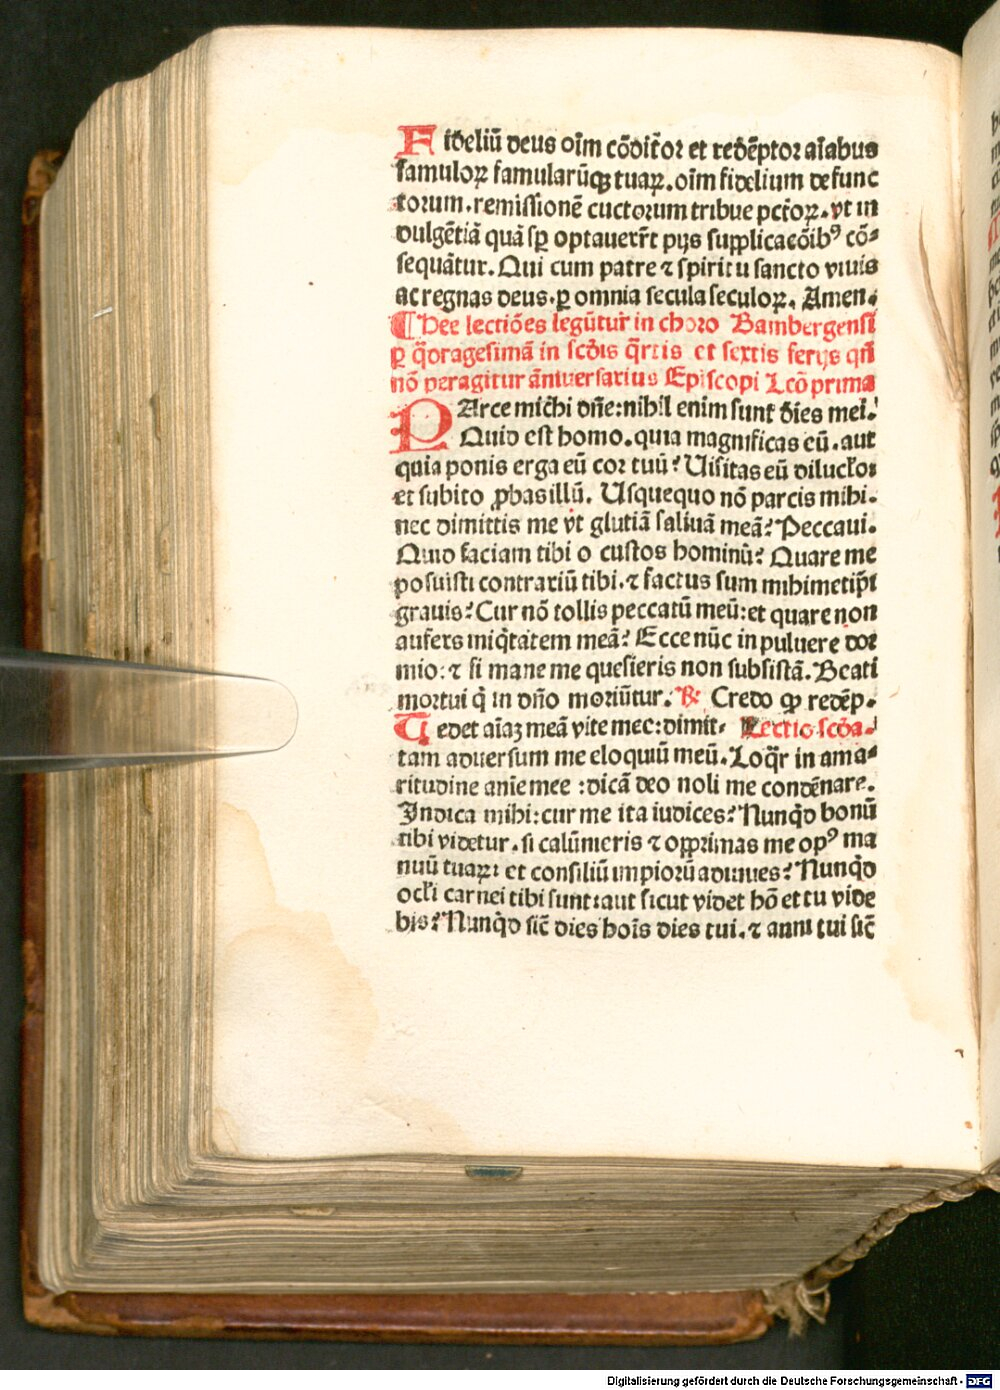 Fideliū deus oīm cōditor et redēptor aīabus
famuloꝝ famularūqꝫ tuaꝝ. oīm fidelium defunc
torum. remissionē cuctorum tribue pctoꝝ. vt in
dulgētiā quā sꝑ optauerūt pijs supplicacōibꝰ cō⸗
sequātur. Qui cum patre ⁊ spiritu sancto viuis
ac regnas deus. ꝑ omnia secula seculoꝝ. Amen.
¶ Hee lectiōes legūtur in choro Bambergensi
ꝑ q̄dragesimā in scdis q̄rtis et sextis ferijs qn̄
nō peragitur āniuersarius Episcopi Lcō prima
PArce michi dn̄e: nihil enim sunt dies mei.
Quid est homo. quia magnificas eū. aut
quia ponis erga eū cor tuū? Uisitas eū diluclo:
et subito ꝓbas illū. Usquequo nō parcis mihi.
nec dimittis me vt glutiā saliuā meā? Peccaui.
Quid faciam tibi o custos hominū? Quare me
posuisti contrariū tibi. ⁊ factus sum mihimetip̄i
grauis? Cur nō tollis peccatū meū: et quare non
aufers iniq̇tatem meā? Ecce nūc in puluere dor
mio: ⁊ si mane me quesieris non subsistā. Beati
mortui q̇ in dn̄o moriūtur. ℟ Credo ꝙ redēp.
Tedet aīaꝫ meā vite mee: dimit⸗ Lectio scda.
tam aduersum me eloquiū meū. Loq̄r in ama⸗
ritudine anīe mee: dicā deo noli me condēnare.
Indica mihi: cur me ita iudices? Nunq̇d bonū
tibi videtur. si calūnieris ⁊ opprimas me opꝰ ma
nuū tuaꝝ: et consiliū impiorū adiuues? Nunq̇d
oculi carnei tibi sunt: aut sicut videt hō et tu vide
bis? Nunq̇d sic̄ dies hoīs dies tui. ⁊ anni tui sic̄
Digitalisierung gefördert durch die Deutsche Forschungsgemeinschaft - DFG